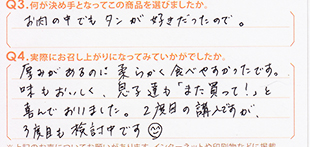 Q3.何が決め手となってこの商品を選びましたか。
お肉の中でもタンが好きだったので。
Q4.実際にお召し上がりになってみていかがでしたか。
厚みがあるのに柔らかく食べやすかったです。
味もおいしく、息子達も「また買って!」と
喜んでおりました。2度目の購入ですが、
3度目も検討中です